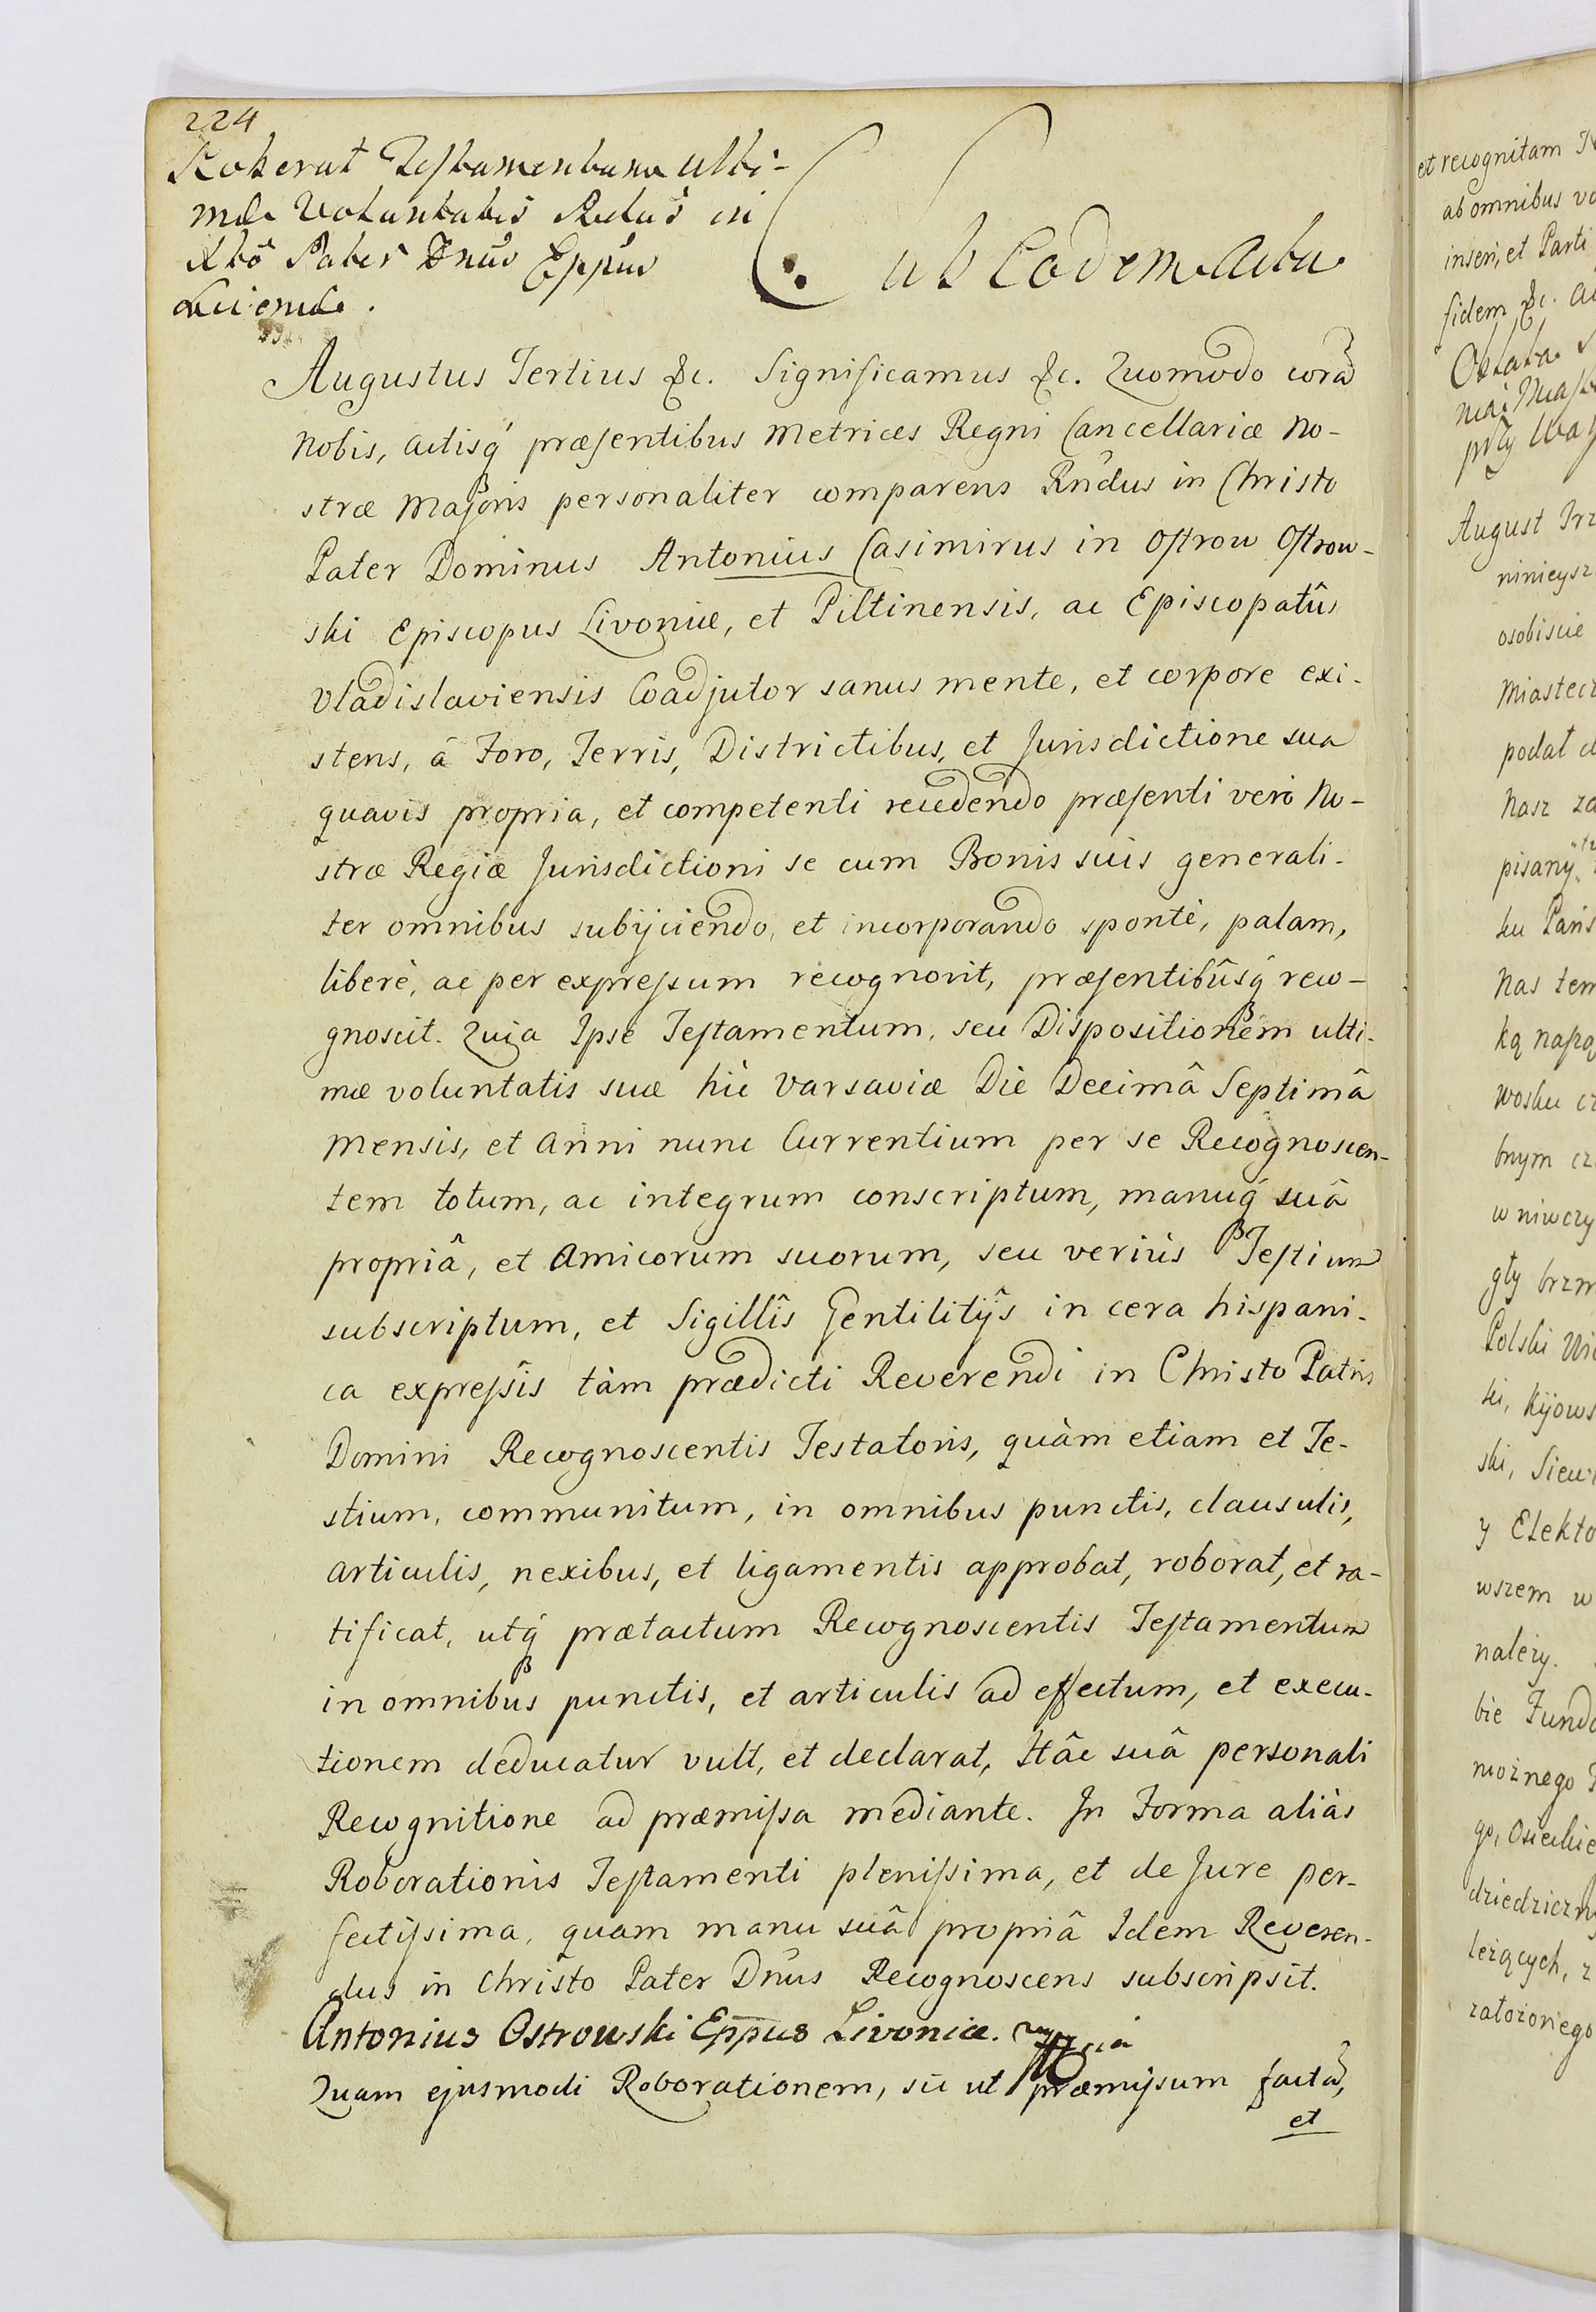 224
Roborat Testamentum ulti-
mæ Voluntatis Rndus in
Xto Pater Dnus Eppus
Livoniæ.
Sub Eodem Actu
Augustus Tertius &c. Significamus &c. Quomodo corã
Nobis, actisq́ præsentibus Metrices Regni Cancellariæ No-
stræ Majoris personaliter comparens Rńdus in Christo
Pater Dominus Antonius Casimirus in Ostrow Ostrow-
ski Episcopus Livoniæ, et Piltinensis, ac Episcopatûs
Vladislaviensis Coadjutor sanus mente, et corpore exi-
stens, â Foro, Terris, Districtibus, et Jurisdictione sua
quavis propria, et competenti recedendo præsenti verò No-
stræ Regiæ Jurisdictioni se cum Bonis suis generali-
ter omnibus subijciendo, et incorporando spontè, palam,
liberè, ac per expressum recognovit, præsentibûsq́ reco-
gnoscit. Quia Ipse Testamentum, seu Dispositionem ulti-
mæ voluntatis suæ hìc Varsaviæ Die Decimâ Septimâ
Mensis, et Anni nunc Currentium per se Recognoscen-
tem totum, ac integrum conscriptum, manuq́ suâ
propriâ, et Amicorum suorum, seu veriùs Testium
subscriptum, et Sigillîs Gentilitijs in cera hispani-
ca expressîs tàm prædicti Reverendi in Christo Patris
Domini Recognoscentis Testatoris, quàm etiam et Te-
stium, communitum, in omnibus punctis, clausulis,
Articulis, nexibus, et ligamentis approbat, roborat, et ra-
tificat, utq́ prætactum Recognoscentis Testamentum
in omnibus punctis, et articulis ad effectum, et execu-
tionem deducatur vult, et declarat, Hâc suâ personali
Recognitione ad præmissa mediante. In Forma aliàs
Roborationis Testamenti plenissima, et de Jure per-
fectissima, quam manu suâ propriâ Idem Reveren-
dus in Christo Pater Dńus Recognoscens subscripsit.
Antonius Ostrowski Eppus Livoniæ. mppria
Quam ejusmodi Roborationem, sic ut præmissum factã,
et
et recognitam
ab omnibus
inseri, et Parti
fidem &c.
Oblata
prʒy
August
ninieysz
osobiscie
Miastecz
podał
Nasz
pisany
ku Pańs
Nas tem
ką
wosku
bnym
w niwczy
gły brzm
Polski
ki, Kijows
ski, Siew
y Elekto
wszem w
należy.
bie Fund
możnego
go, Osieckie
dziedziczny
leżących, z
założonego